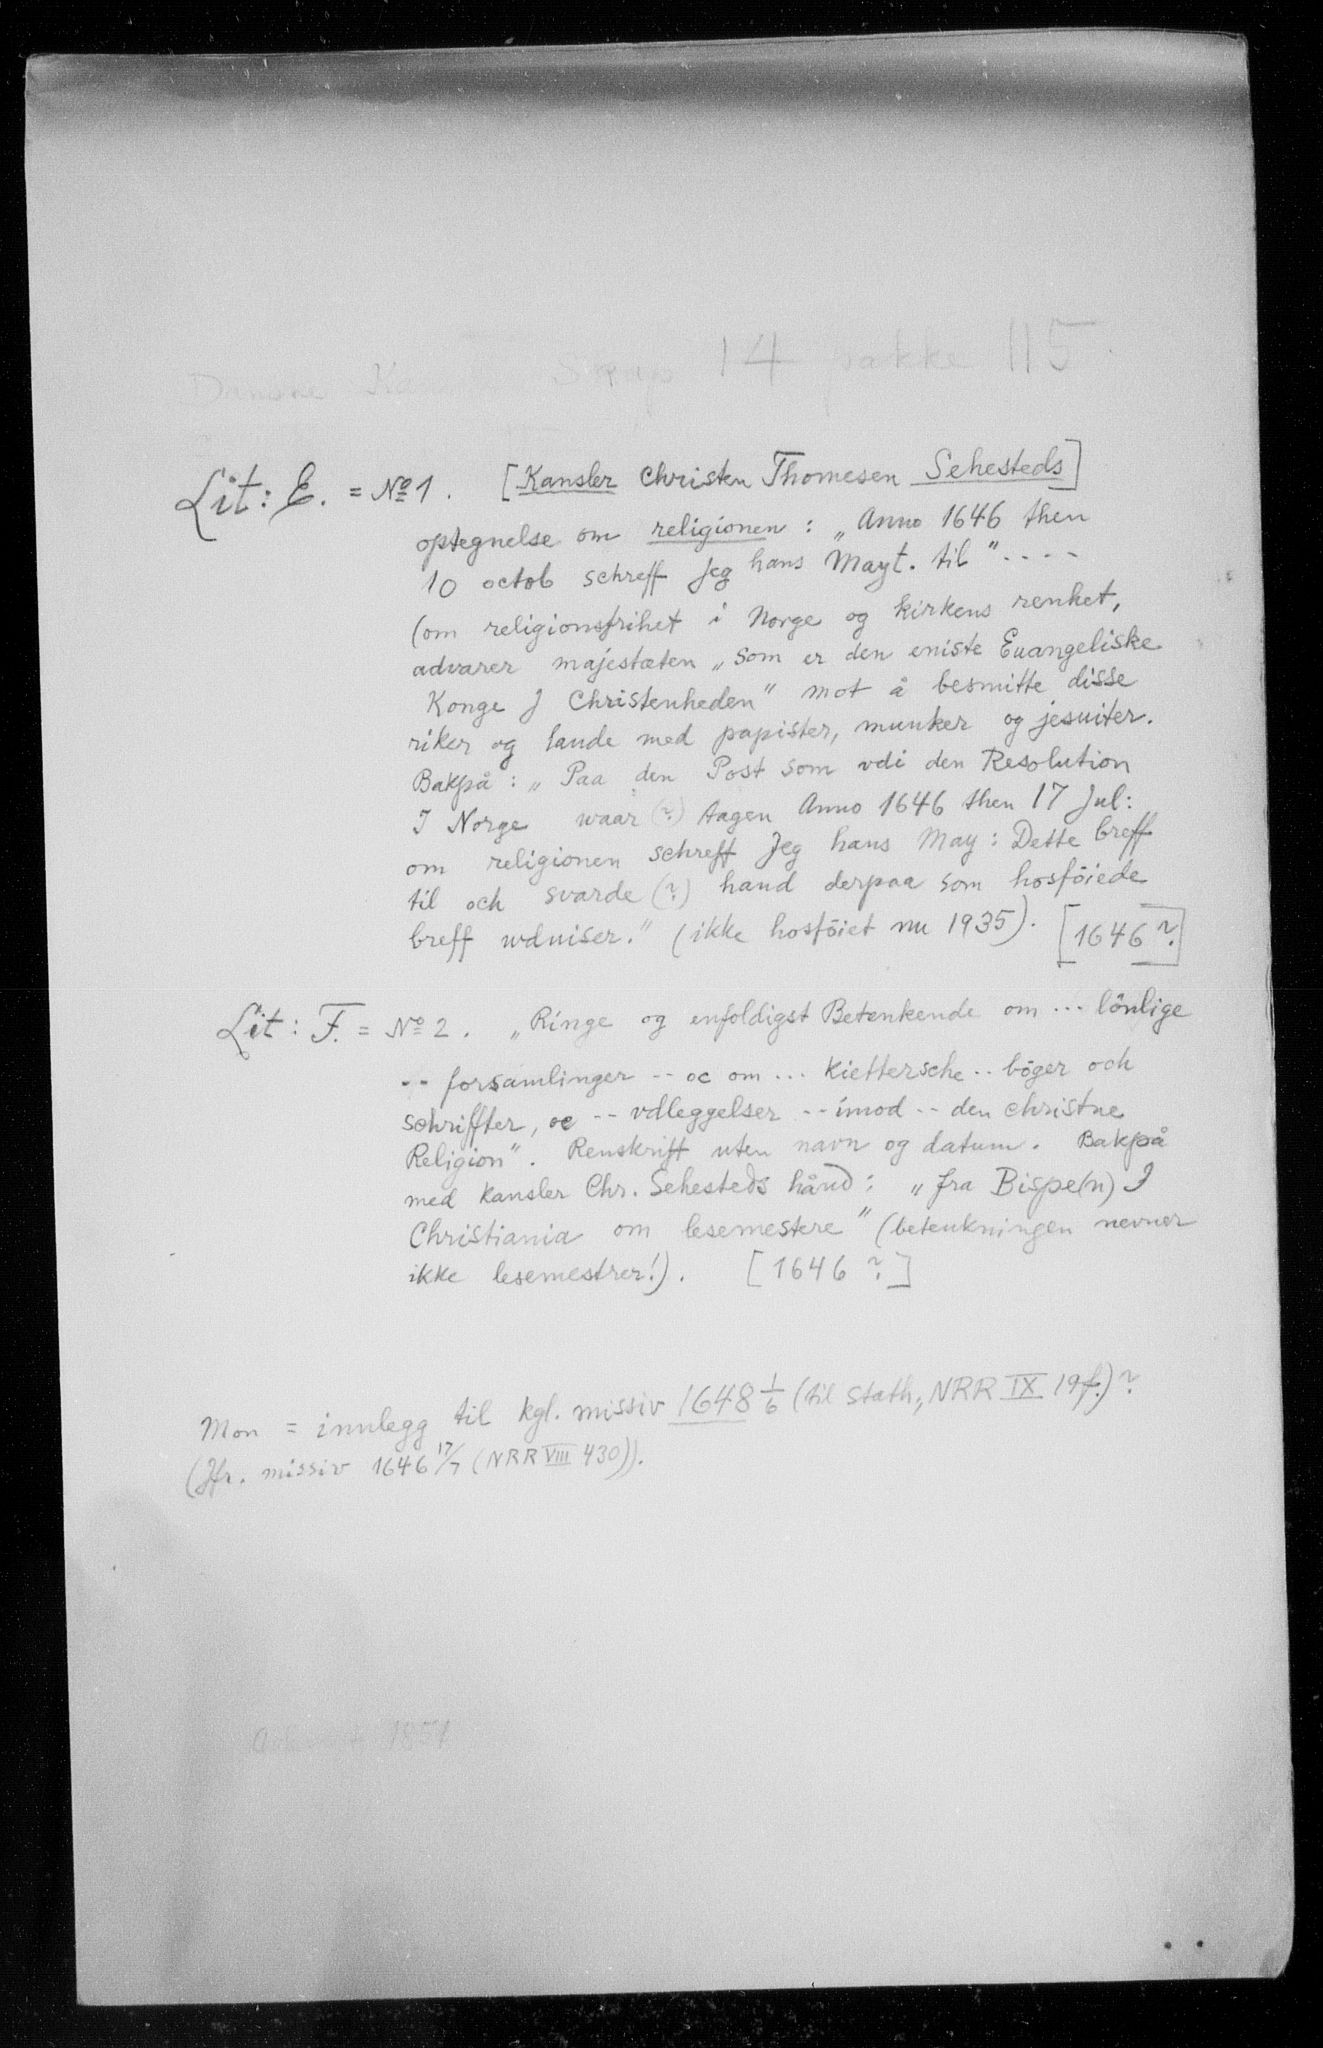 Danske Skap 14 pakke 115.
Lit: E. = No 1. [Kansler Christen Thomesen Sehesteds]
optegnelse om religionen : „Anno 1646 then
10 octob schreff Jeg hans Mayt. til" ----
(om religionsfrihet i Norge og kirkens renhet,
advarer majestæten „som er den eniste Euangeliske
Konge J Christenheden" mot å besmitte disse
riker og lande med papister, munker og jesuiter.
Bakpå : „Paa den Post som vdi den Resolution
I Norge waar (?) tagen Anno 1646 then 17 Jul:
om religionen schreff Jeg hans May: Dette breff
til och svarde (?) hand derpaa som hosföiede
breff udviser." (ikke hosföiet nu 1935). [1646 ?]
Lit: F. = No 2. „Ringe og enfoldigst Betenkende om --- lönlige
-- forsamlinger -- oc om --- Kiettersche -- böger och
schriffter, oc -- vdleggelser -- imod -- den christne
Religion". Renskrift uten navn og datum. Bakpå
med kansler Chr. Sehesteds hånd: „fra Bispe(n) J
Christiania om lesemestere" (betenkningen nevner
ikke lesemestrer!). [1646 ?]
Mon = innlegg til kgl. missiv 1648 1/6 (til Stath., NRR IX 19f.)?
(Jfr. missiv 1646 17/7 (NRR VIII 430)).
1851